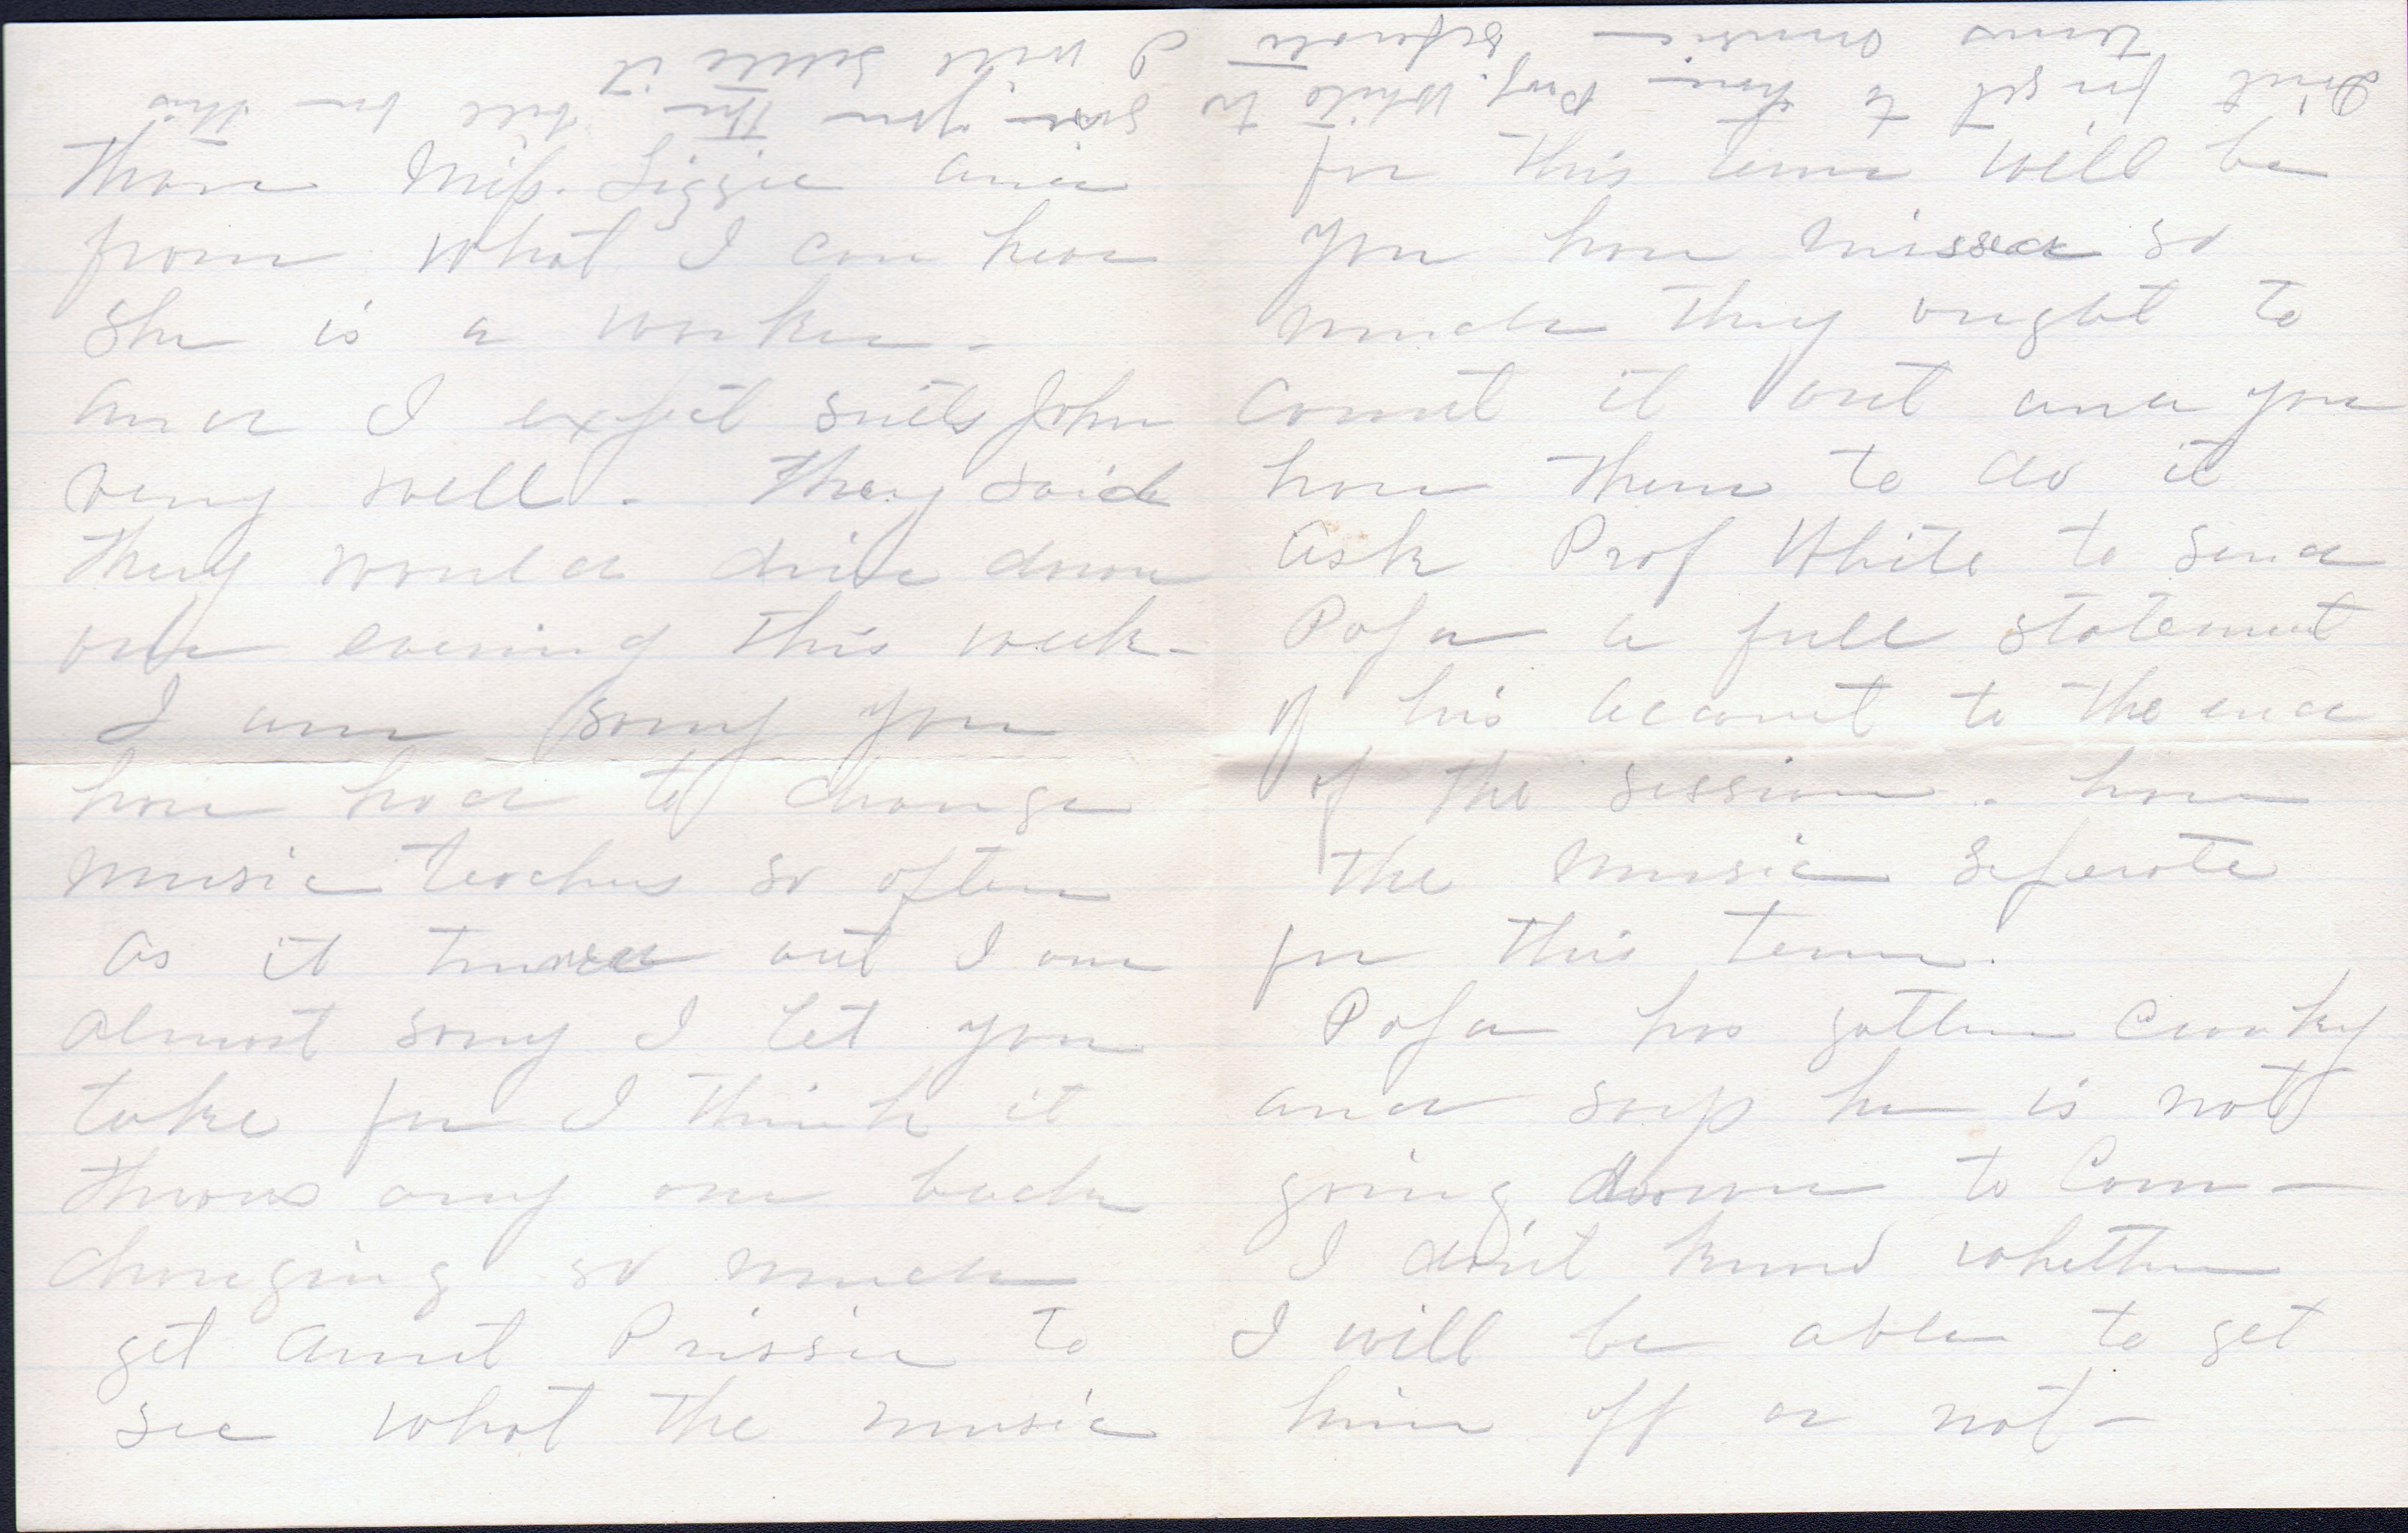 than Miss. Lizzie and
from what I can hear
she is a worker -
and I expect suits John
very well. They said
they would drive down
one evening this week -
I am sorry you
have had to change
music teachers so often
as it turned out I am
almost sorry I let you
take for I think it
throws any one back
changing so much
get Aunt Prissie to
see what the music
for this term will be
you have missed so
much they ought to
count it out and you
have them to do it
ask Prof White to send
Papa a full statement
of his account to the end
of the session. have
the music seperate
for this term.
Papa has gotten cranky
and says he is not
going down to Com -
I don't know whether
I will be able to get
him off or not -
Don't forget to have Prof. White to give you the bill for this
term music seperate I will settle it